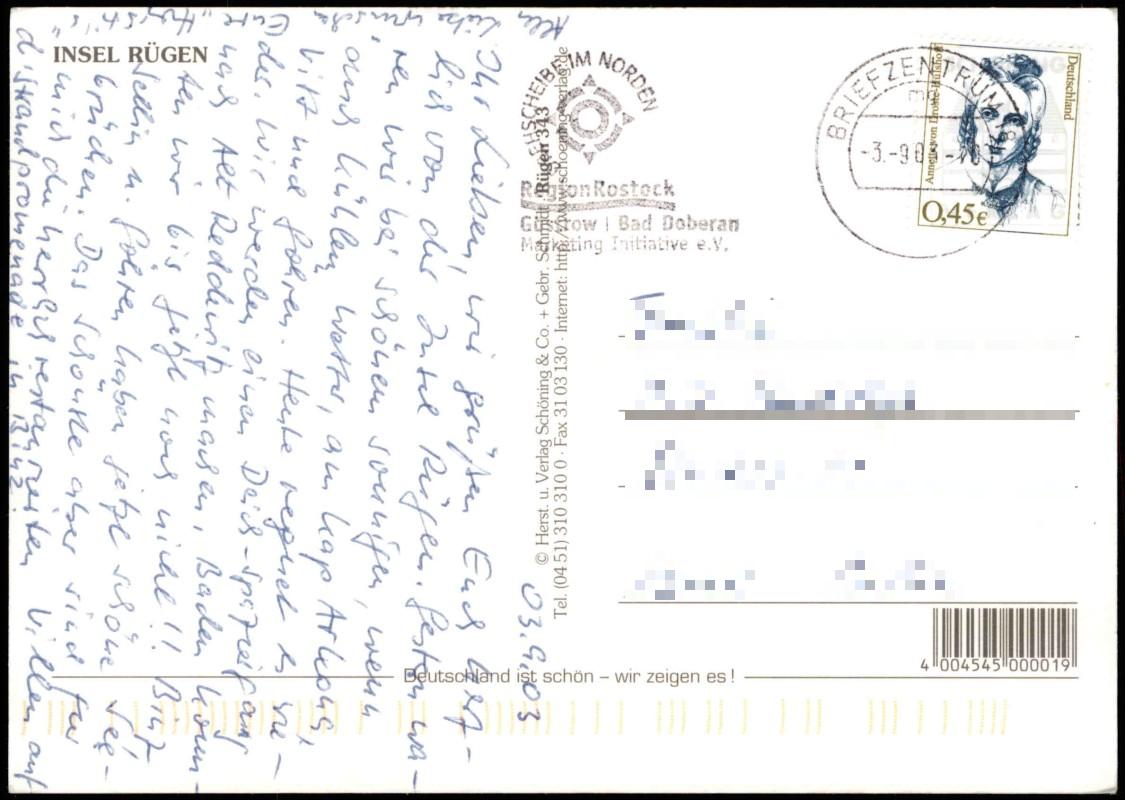 INSEL RÜGEN
03.9.03
Ihr Lieben, wir grüßen Euch herz-
lich von der Insel Rügen. Gestern wa-
ren wir bei schönem sonnigen, wenn
auch kühlen Wetter, am Kap Arkona,
Vitt und Lohren. Heute regnet es wie-
der. Wir werden einen Deich-spaziergang
nach Alt Reddevitz machen. Baden konn-
ten wir bis jetzt noch nicht!! Binz
Sellin u. Göhren haben jetzt schöne See-
brücken. Das schönste aber sind für
mich die herrlich restaurierten Villen auf
d. Strandpromenade in Binz
Alles Liebe wünschen
Eure
FISCHSCHEIBE IM NORDEN
Region Rostock
Güstrow | Bad Doberan
Marketing Initiative e.V.
BRIEFZENTRUM 18
-3.-9.03-
Deutschland
Annette von Droste-Hülshoff
0,45€
© Herst. u. Verlag Schöning & Co. + Gebr. Schmidt · Rügen 343
Tel. (04 51) 310 310 0 · Fax 31 03 130 · Internet: http://www.schoening-verlag.de
4 004545 000019
Deutschland ist schön – wir zeigen es !